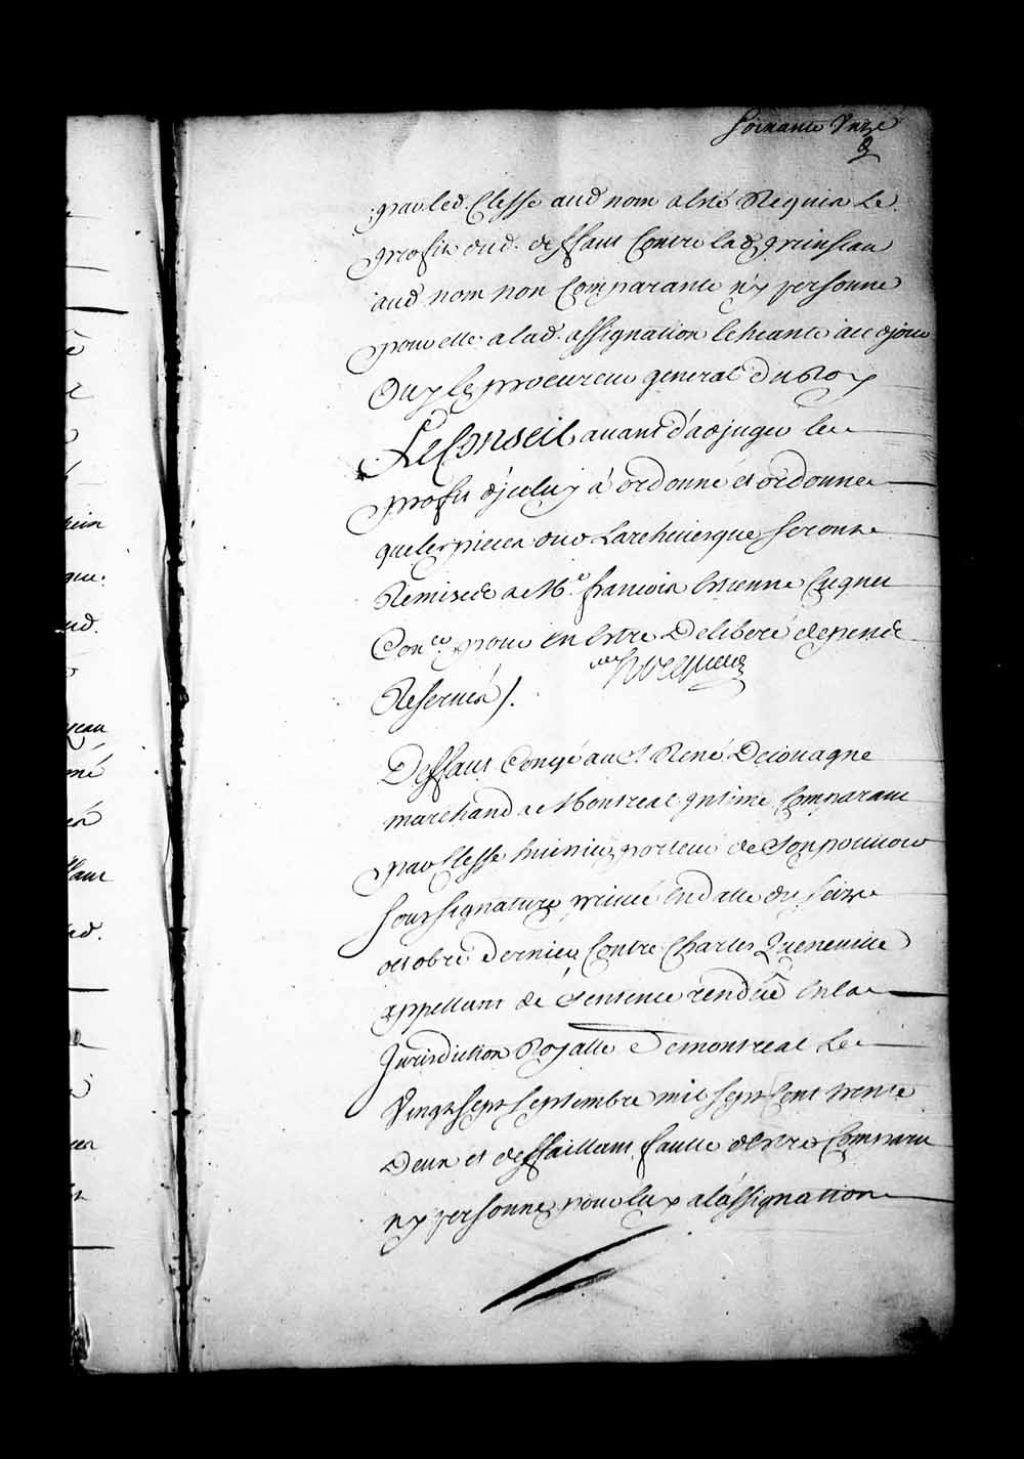 soixante Unze
par led. Clesse aud nom a esté Requis Le
proffit dud. deffaut Contre lad. prinseau
aud nom non Comparante ny personne
pour elle a lad. assignation Echeante a ce jour
Ouy le procureur general du Roy
Le Conseil avant d'adjuger le
proffit d'jceluy á ordonné et ordonne
que les pieces dud Larchevesque seront
Remises a Me. francois Estienne Cugnet
Coner. pour en Estre Deliberé depens
Reservés /.
Deffaut Congé au Sr René Decouagne
marchand a Montreal jntimé Comparant
par Clesse huissier, porteur de Son pouvoir
sous signature privée En datte du seize
octobre Dernier Contre Charles Queneville
appellant de Sentence rendüe En la
Jurisdiction Royalle De montreal Le
Vingt sept septembre mil sept Cent trente
Deux et deffaillant faute d'estre Comparu
ny personne pour luy a l'assignation
hin
que.
ud.
eau
mé
és
laut
ed.